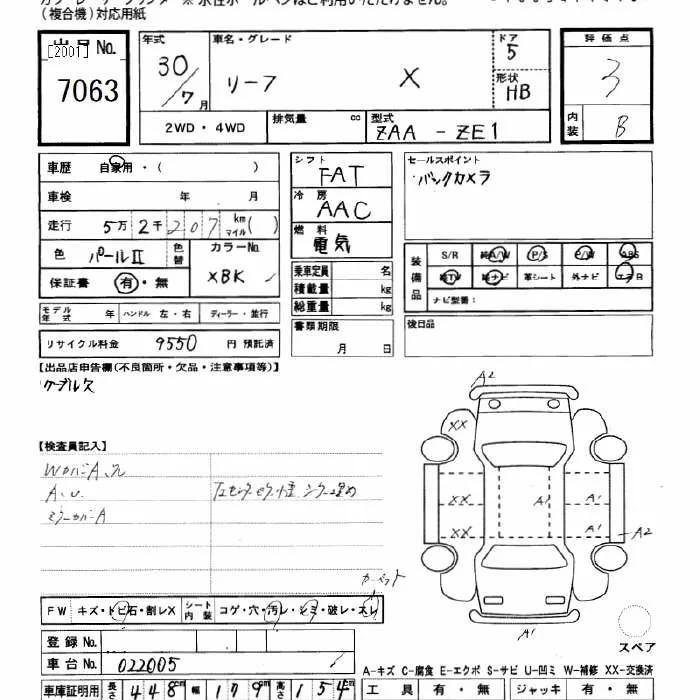 (複合機)対応用紙
出品No. [2001] 7063
年式 30/7月
車名・グレード リーフ X
ドア 5
形状 HB
評価点 3
内装 B
2WD・4WD
排気量 cc
型式 ZAA - ZE1
車歴 自家用・( )
車検 年 月
走行 5万2千207 km マイル( )
色 パールII 色替
カラーNo. XBK
保証書 有・無
シフト FAT
冷房 AAC
燃料 電気
乗車定員 名
積載量 kg
総重量 kg
書類期限 月 日
セールスポイント
バックカメラ
装備品 S/R 純A/W P/S P/W ABS
純TV 純ナビ 革シート 外ナビ エアB
ナビ型番:
後日品
モデル年式 年 ハンドル 左・右 ディーラー・並行
リサイクル料金 9550 円 預託済
【出品店申告欄(不良箇所・欠品・注意事項等)】
ケーブル欠
【検査員記入】
A、U.
ミラーカバーA
カーペット
FW キズ・トビ石・割レX シート内装 コゲ・穴・汚レ・シミ・破レ・スレ
登録No.
車台No. 022005
車庫証明用 長さ 448cm 幅 179cm 高さ 154cm
A2
XX
XX
XX
A1
A1
A1
A2
A1
スペア
A-キズ C-腐食 E-エクボ S-サビ U-凹ミ W-補修 XX-交換済
工具 有・無 ジャッキ 有・無